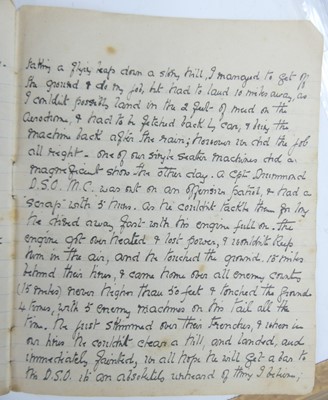 taking a flying leap down a stony hill, I managed to get off
the ground & do my job, but had to land 10 miles away, as
I couldn't possibly land in the 2 feet of mud on the
Aerodrome, & had to be fetched back by car, & bring the
machine back after the rain; however we did the job
all right - One of our single seater machines did a
magnificent show the other day. A Cpt Drummond
D.S.O. M.C. was out on an offensive patrol, & had a
"scrap" with 5 Huns. As he couldn't tackle them for long
he dived away fast with his engine full on - the
engine got over heated & lost power, & wouldn't keep
him in the air, and he touched the ground 15 miles
behind their lines, & came home over all enemy country
(15 miles) never higher than 50 feet & touched the ground
4 times, with 5 enemy machines on his tail all the
time. He just skimmed over their trenches, & when in
our lines he couldn't clear a hill, and landed, and
immediately fainted, we all hope he will get a bar to
his D.S.O. its an absolutely unheard of thing I believe;